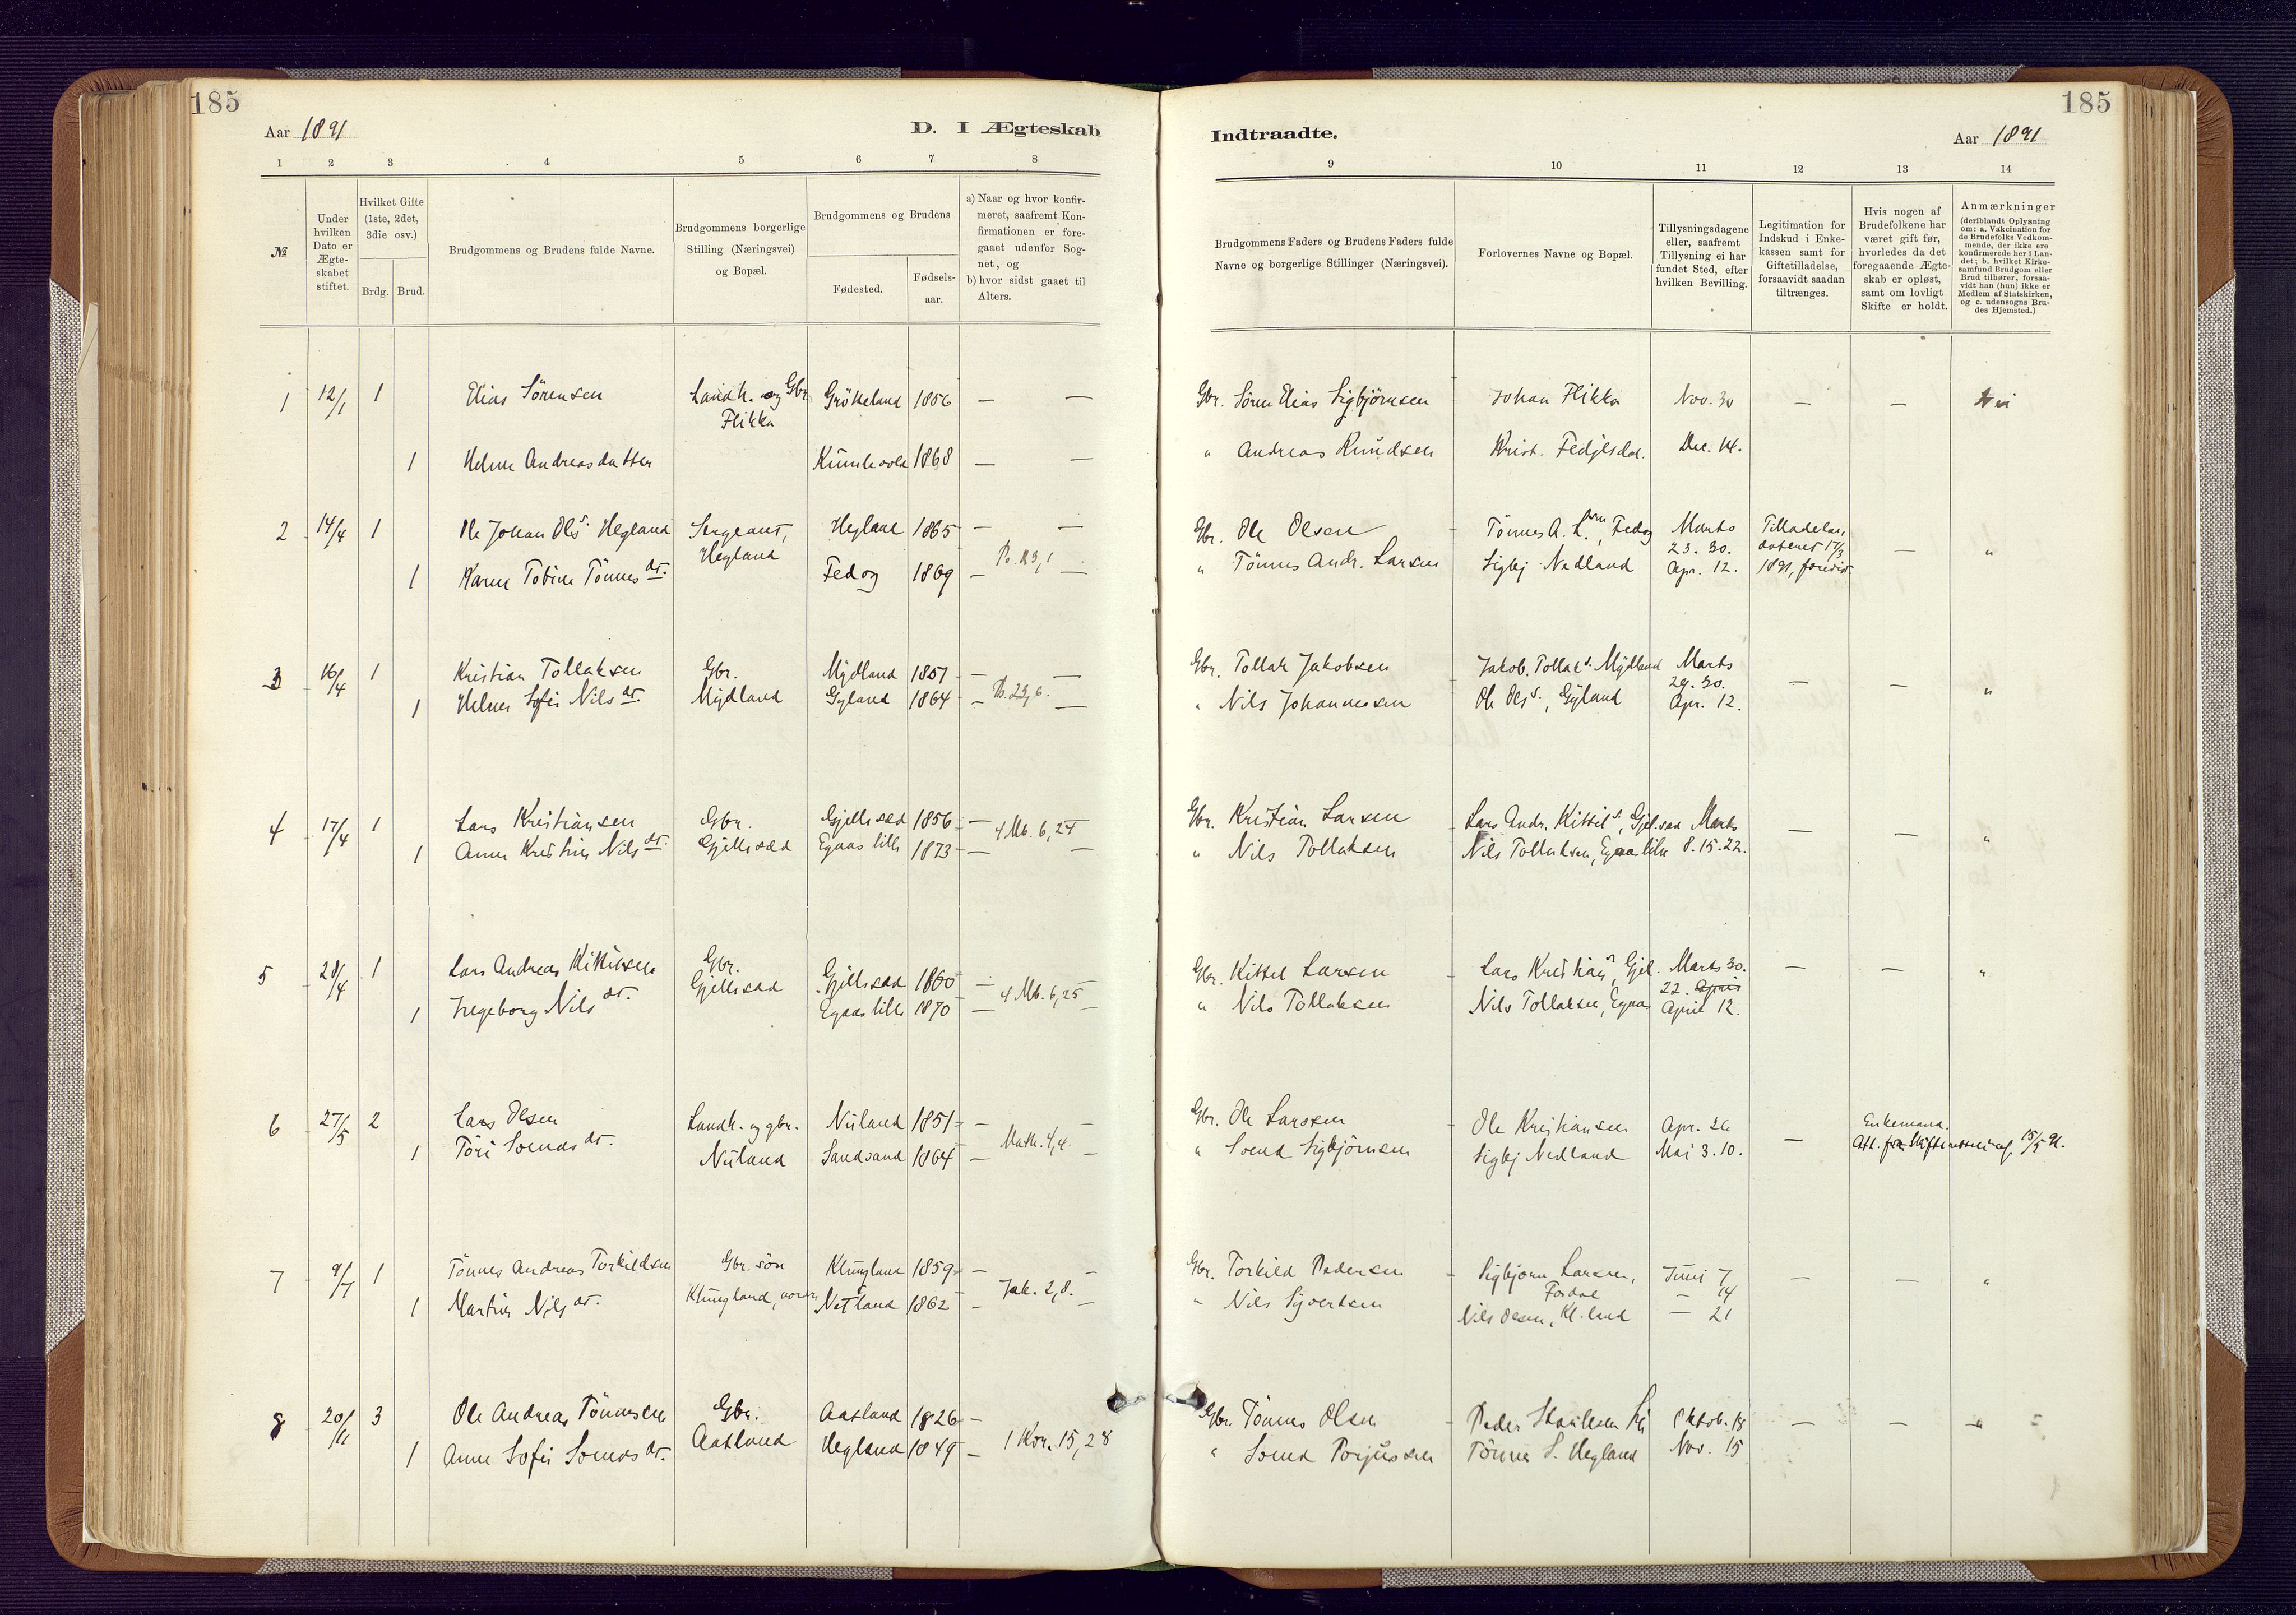 185
Aar 1891
D. I Ægteskab
1 2 3 4 5 6 7 8
№
Under hvilken Dato er Ægteskabet stiftet.
Hvilket Gifte (1ste, 2det, 3die osv.)
Brdg. Brud.
Brudgommens og Brudens fulde Navne.
Brudgommens borgerlige Stilling (Næringsvei) og Bopæl.
Brudgommens og Brudens
Fødested.
Fødsels-aar.
a) Naar og hvor konfir-
meret, saafremt Kon-
firmationen er fore-
gaaet udenfor Sog-
net, og
b) hvor sidst gaaet til
Alters.
1 12/1 1 Elias Sörensen Landh. og Gbr. Flikka 1856 — —
1 Helene Andreasdatter 1868 — —
2 14/4 1 Ole Johan Ols s. Hegland Sergeant, Hegland Hegland 1865 — —
1 Karen Tobine Tönnes dt. Fedog 1869 —
3 16/4 1 Kristian Tollaksen Gbr. Mydland Mydland 1851 — —
1 Helene Sofie Nils dt. Gyland 1864 —
4 17/4 1 Lars Kristiansen Gbr. Gjellesad Gjellesad 1856 — 4 Mb. 6, 24
1 Anne Kristine Nils dt. Egaas lille 1873 — —
5 28/4 1 Lars Andreas Kittilsen Gbr. Gjellesad Gjellesad 1860 — 4 Mb. 6, 25
1 Ingeborg Nils dt. Egaas lille 1870 — —
6 27/5 2 Lars Olsen Landh. og gbr. Nuland Nuland 1851 — Math. 4, 4.
1 Töri Svends dt. Sandsand 1864 — —
7 9/7 1 Tönnes Andreas Torkildsen Gbr. sön Klungland, Klungland 1859 — Jak. 2, 8.
1 Martine Nils dt. Netland 1862 — —
8 20/11 3 Ole Andreas Tönnesen Gbr. Aatland Aatland 1826 —
1 Anne Sofie Svends dt. Hegland 1849 — 1 Kor. 15, 28
185
Indtraadte.
Aar 1891
9 10 11 12 13 14
Brudgommens Faders og Brudens Faders fulde
Navne og borgerlige Stillinger (Næringsvei).
Forlovernes Navne og Bopæl.
Tillysningsdagene
eller, saafremt
Tillysning ei har
fundet Sted, efter
hvilken Bevilling.
Legitimation for
Indskud i Enke-
kassen samt for
Giftetilladelse,
forsaavidt saadan
tiltrænges.
Hvis nogen af
Brudefolkene har
været gift før,
hvorledes da det
foregaaende Ægte-
skab er opløst,
samt om lovligt
Skifte er holdt.
Anmærkninger
(deriblandt Oplysning
om: a. Vakcination for
de Brudefolks Vedkom-
mende, der ikke ere
konfirmerede her i Lan-
det; b. hvilket Kirke-
samfund Brudgom eller
Brud tilhører, forsaa-
vidt han (hun) ikke er
Medlem af Statskirken,
og c. udensogns Bru-
des Hjemsted.)
Gbr. Sören Elias Sigbjörnsen Johan Flikka Nov. 30 — — Nei
" Andreas Knudsen Krist. Fedjesdal. Dec. 14.
Gbr. Ole Olsen Tönnes A. Fedog Marts 23. 30. Tilladelse, dateret 17/3 — "
" Tönnes Andr. Larsen Sigbj Nedland Apr. 12. 1891,
Gbr. Tollak Jakobsen Jakob Tollak s. Mydland Marts 29. 30. — — "
" Nils Johannessen Ole Ols s., Gyland Apr. 12.
Gbr. Kristian Larsen Lars Andr. Kittil s., Gjel.sad Marts — — "
" Nils Tollaksen Nils Tollaksen, Egaa lille 8. 15. 22.
Gbr. Kittel Larsen Lars Kristian s., Gjel. Marts 30. — — "
" Nils Tollaksen Nils Tollaksen, Egaas 22. April April 12.
Gbr. Ole Larssen Ole Kristiansen Apr. 26 — Enkemand.
" Svend Sigbjörnsen Sigbj Nedland Mai 3. 10. Att. fra Skifteretten af 15/5 91.
Gbr. Torkild Pedersen Sigbjörn Larsen, Juni 7 — — "
" Nils Sjvertsen — 14
Nils Olsen, Kl.land — 21
Gbr. Tönnes Olsen Peder Oktob. 18 — — "
" Svend Torjussen Tönnes S. Hegland Nov. 15